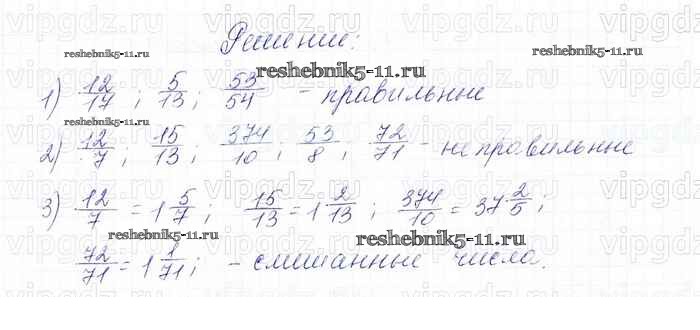 vipgdz.ru vipgdz.ru vipgdz.ru vipgdz.ru
Решение:
reshebnik5-11.ru reshebnik5-11.ru
reshebnik5-11.ru
1) 12/17 ; 5/13 ; 53/54 - правильные
reshebnik5-11.ru
2) 12/7 ; 15/13 ; 374/10 ; 53/8 ; 72/71 - неправильные
3) 12/7 = 1 5/7 ; 15/13 = 1 2/13 ; 374/10 = 37 2/5 ;
reshebnik5-11.ru reshebnik5-11.ru
72/71 = 1 1/71 ; - смешанные числа.